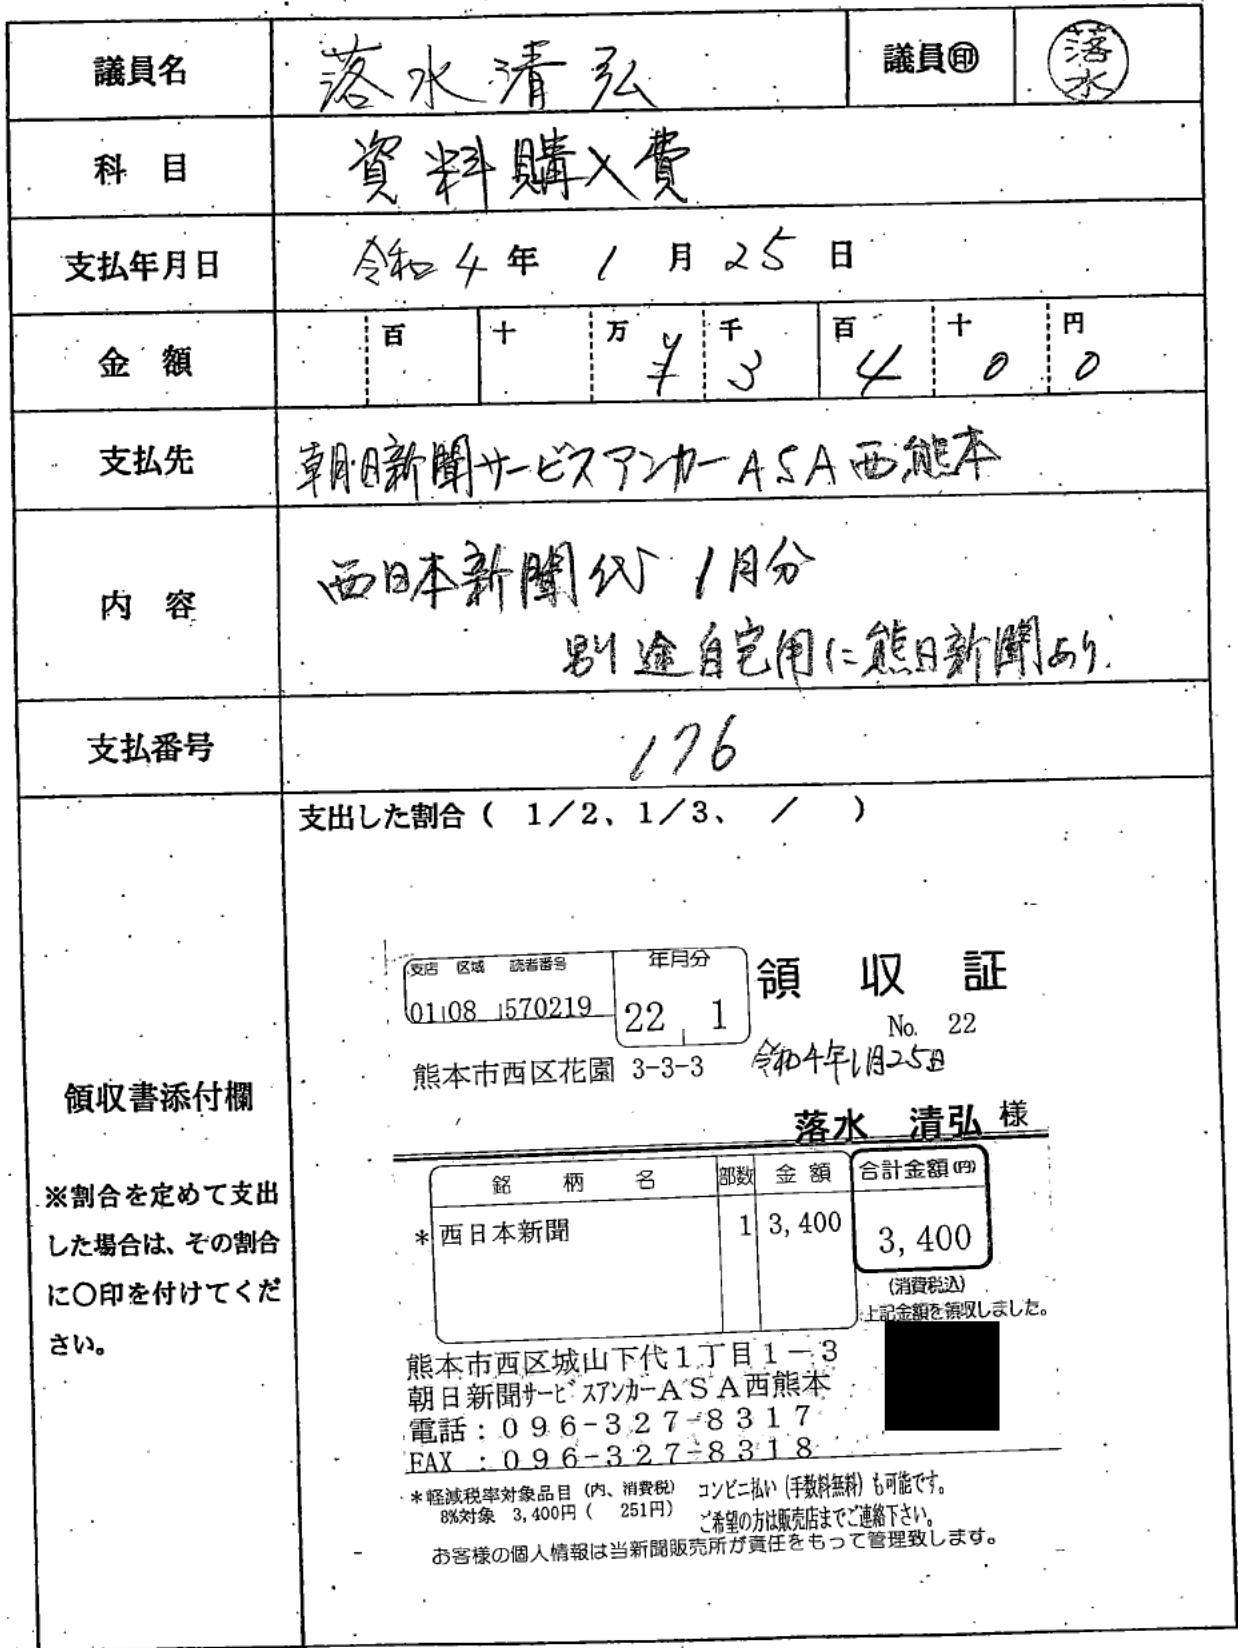 議員名 落水清弘 議員㊞ 落水
科 目 資料購入費
支払年月日 令和4年 1月25日
金 額 百 十 万 千 百 十 円
¥ 3 4 0 0
支払先 朝日新聞サービスアンカーASA西熊本
内 容 西日本新聞代 1月分
別途自宅用に熊日新聞あり.
支払番号 176
支出した割合( 1/2、1/3、 / )
領収書添付欄
※割合を定めて支出
した場合は、その割合
に○印を付けてくだ
さい。
支店 区域 読者番号 年月分
01 08 570219 22 1
領 収 証
No. 22
熊本市西区花園 3-3-3 令和4年1月25日
落水 清弘 様
銘 柄 名 部数 金 額 合計金額(円)
*西日本新聞 1 3,400 3,400
(消費税込)
上記金額を領収しました。
熊本市西区城山下代1丁目1-3
朝日新聞サービスアンカーASA西熊本
電話:096-327-8317
FAX :096-327-8318
*軽減税率対象品目(内、消費税) コンビニ払い(手数料無料)も可能です。
8%対象 3,400円( 251円) ご希望の方は販売店までご連絡下さい。
お客様の個人情報は当新聞販売所が責任をもって管理致します。